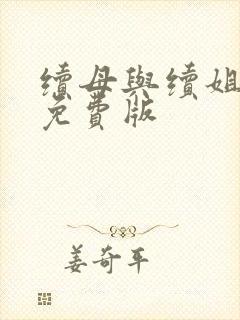 續母與續姐
免費版
姜奇平